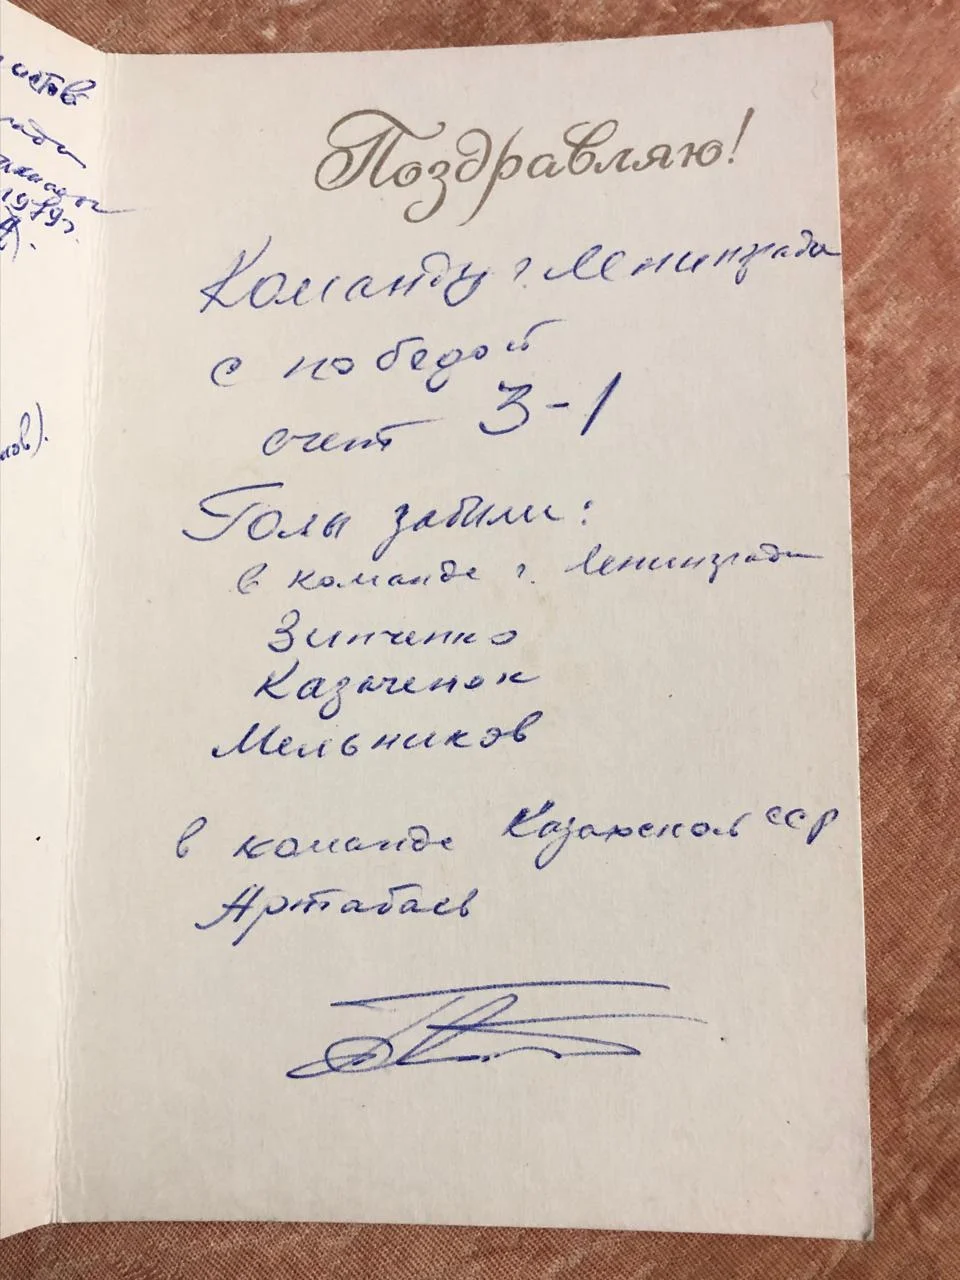 Поздравляю!
Команду г. Ленинграда
с победой
счет 3-1
Голы забили:
в команде г. Ленинграда
Зинченко
Казаченок
Мельников
в команде Казахской ССР
Артабаев
1979г.